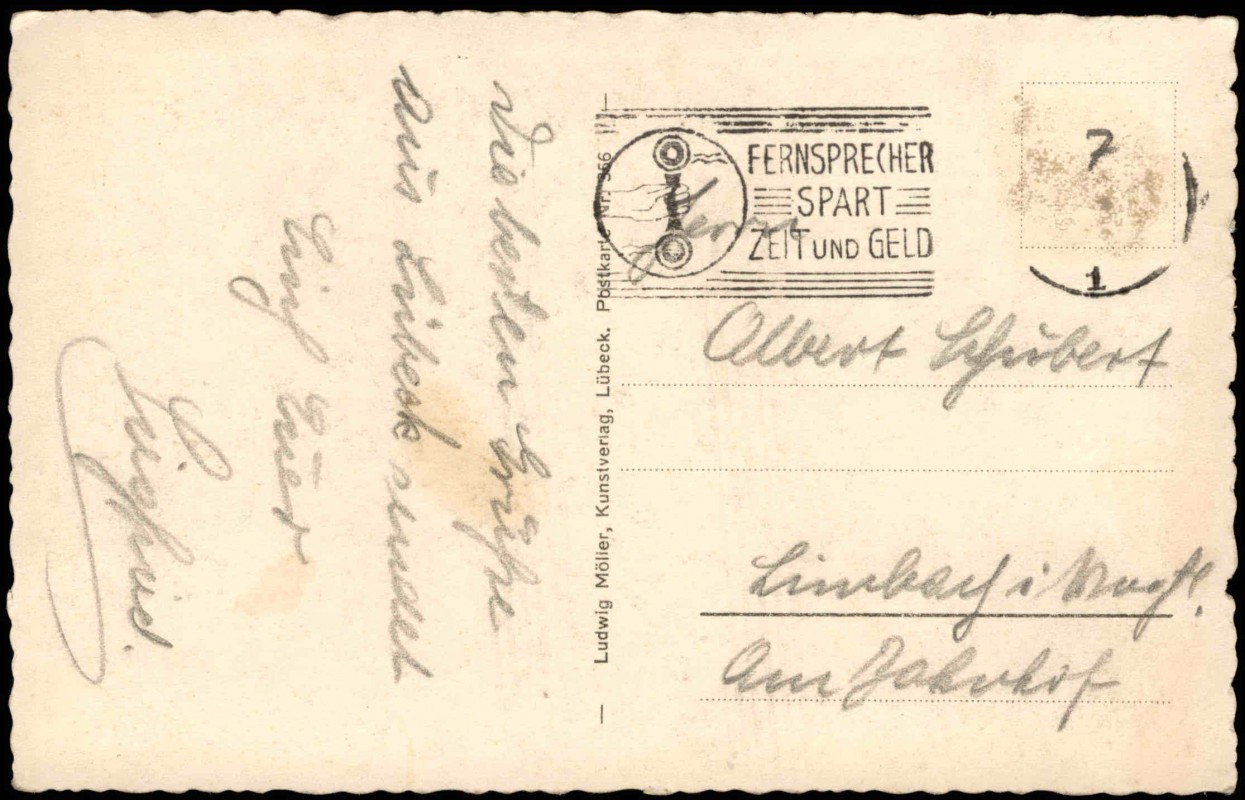 Die besten Grüße
aus Lübeck sendet
Euch Euer
Ludwig Möller, Kunstverlag, Lübeck. Postkarte Nr. 366
FERNSPRECHER
SPART
ZEIT UND GELD
1
Herrn
Albert Schubert
Limbach i Vogtl.
Am Bahnhof